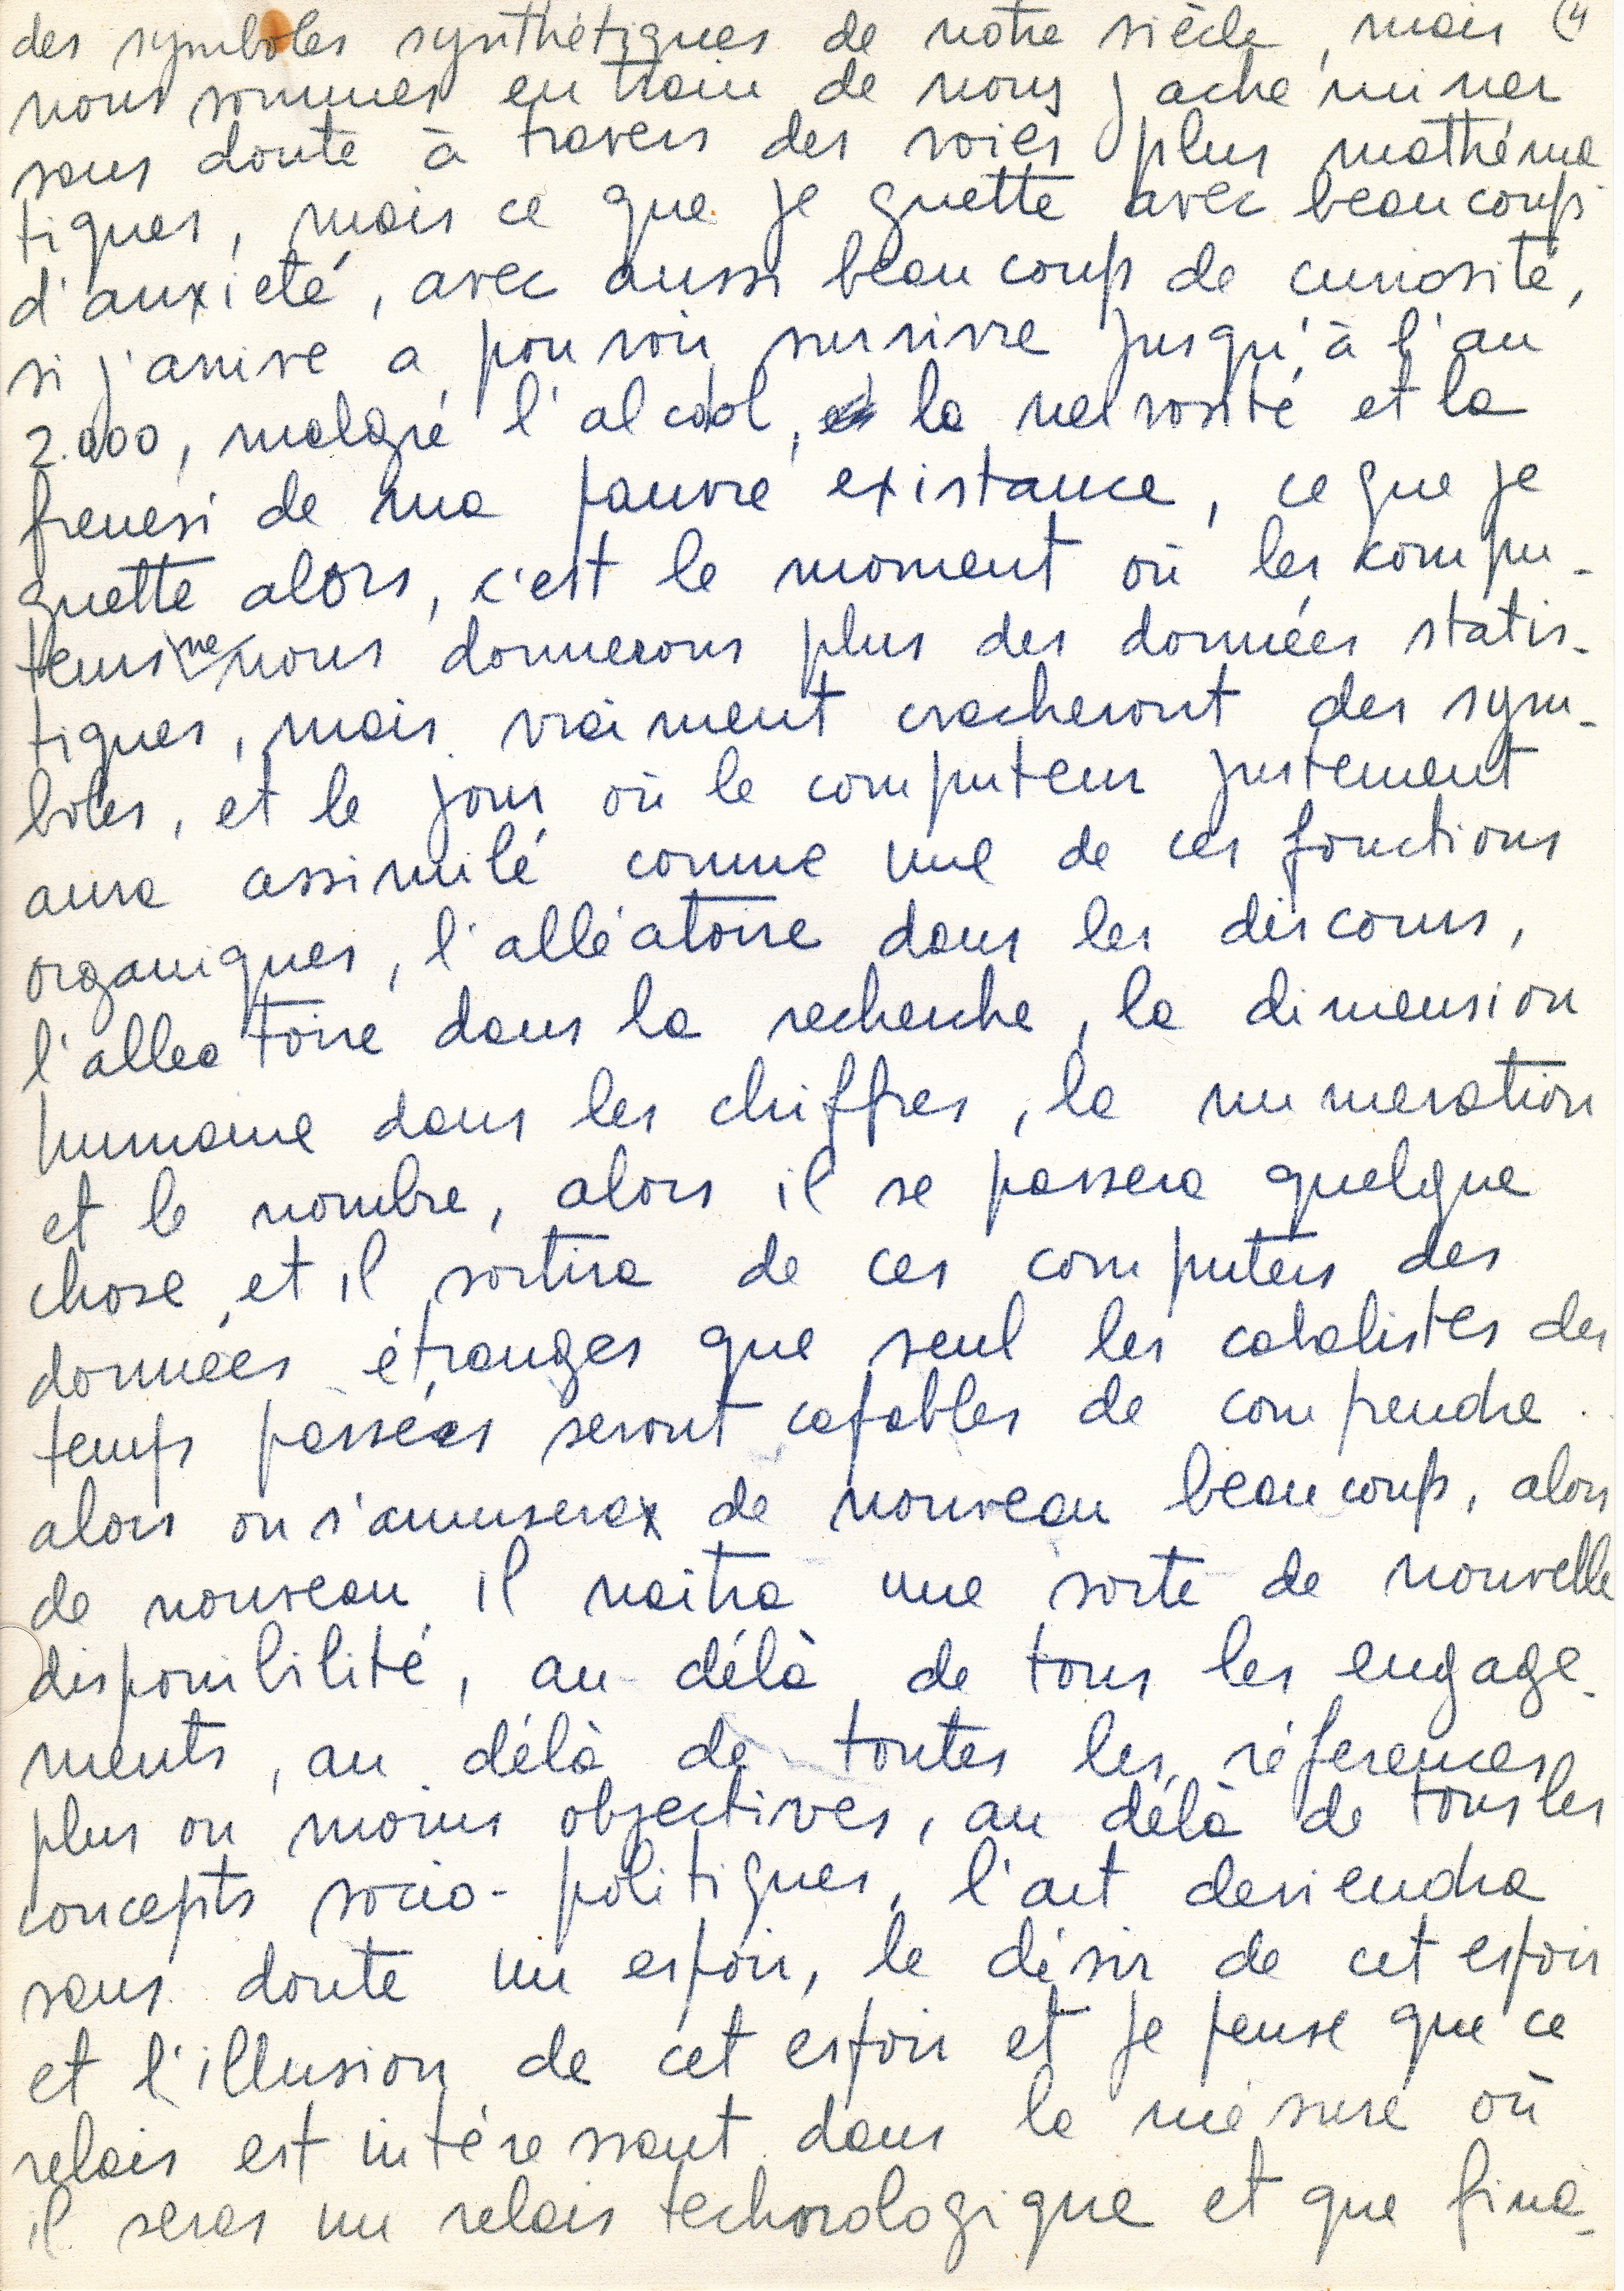 des symboles synthétiques de notre siècle, mais (4
nous sommes en train de nous y acheminer
sans doute à travers des voies plus mathéma
tiques, mais ce que je guette avec beaucoup
d'anxieté, avec aussi beaucoup de curiosité,
si j'arrive a pouvoir survivre jusqu'à l'an
2.000, malgré l'alcool, la nervosité et la
frenesi de ma pauvre existance, ce que je
guette alors, c'est le moment où les compu-
teurs ne nous donnerons plus des données statis-
tiques, mais vraiment cracheront des sym-
boles, et le jour où le computeur justement
aura assimilé comme une de ces fonctions
organiques, l'alléatoire dans les discours,
l'alleatoire dans la recherche, la dimension
humaine dans les chiffres, la numeration
et le nombre, alors il se passera quelque
chose et il sortira de ces computers des
données étranges que seul les cabalistes des
temps passées seront capables de comprendre.
alors on s'amusera de nouveau beaucoup, alors
de nouveau il naitra une sorte de nouvelle
disponibilité, au-délà de tous les engage-
ments, au délà de toutes les réferences
plus ou moins objectives, au délà de tous les
concepts socio-politiques, l'art deviendra
sans doute un espoir, le désir de cet espoir
et l'illusion de cet espoir et je pense que ce
relais est intéressant dans la mésure où
il seras un relais techonologique et que fina-